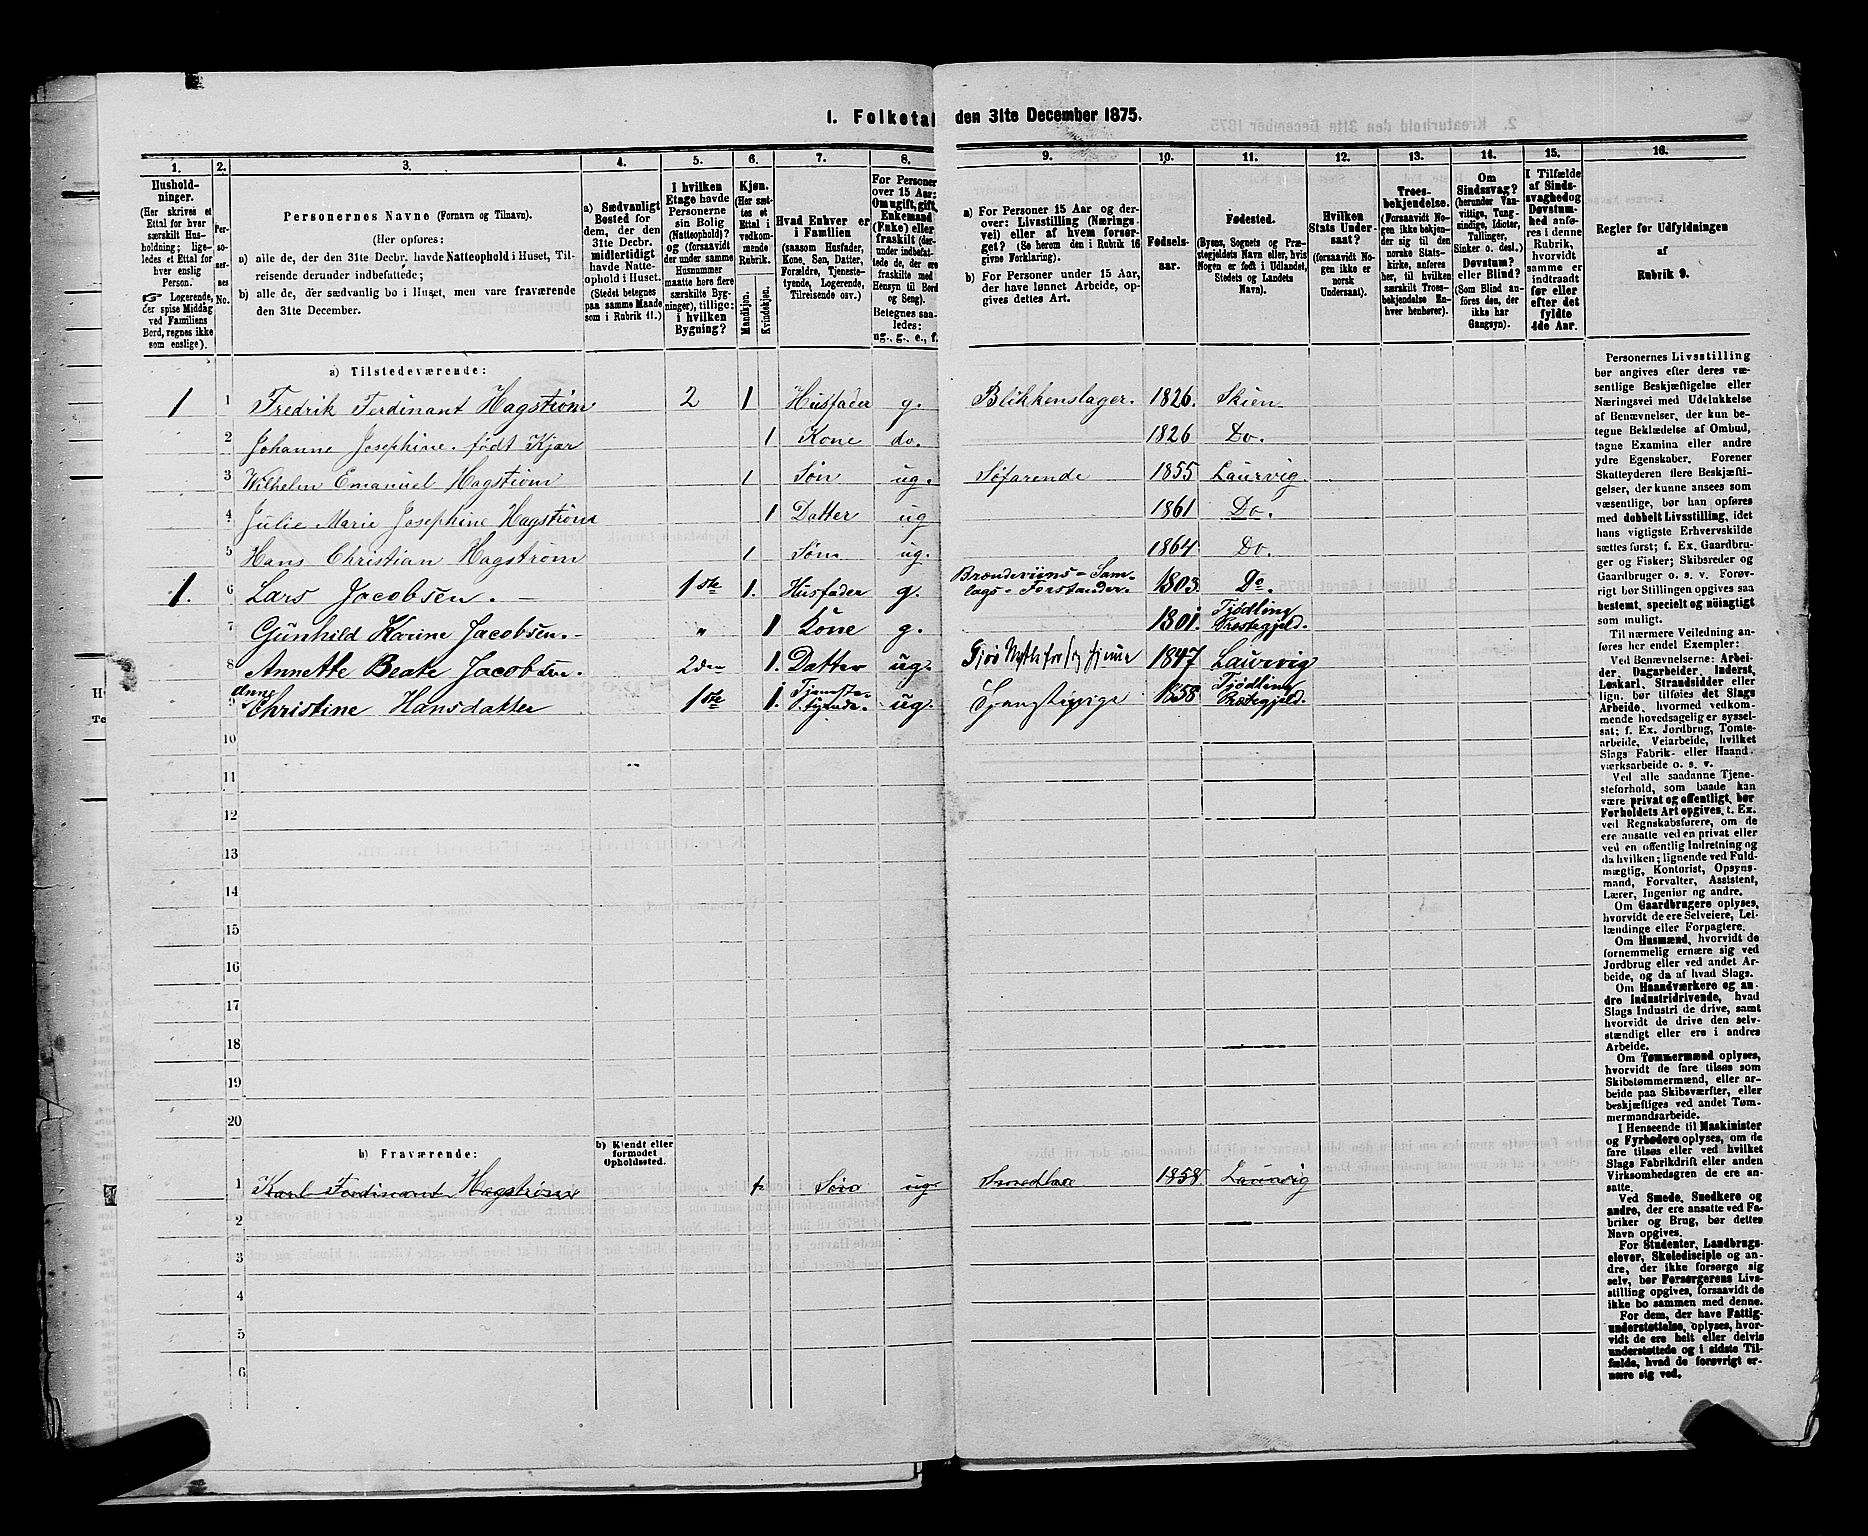 1. Folketal den 31te December 1875.
1. 2. 3. 4. 5. 6. 7. 8. 9. 10. 11. 12. 13. 14. 15. 16.
Hushold-
ninger.
(Her skrives et
Ettal for hver
særskilt Hus-
holdning; lige-
ledes et Ettal for
hver enslig
Person.
☞ Logerende,
der spise Middag
ved Familiens
Bord, regnes ikke
som enslige).
Per-
so-
ner-
nes
No.
Personernes Navne (Fornavn og Tilnavn).
(Her opføres:
a) alle de, der den 31te Decbr. havde Natteophold i Huset, Til-
reisende derunder indbefattede;
b) alle de, der sædvanlig bo i Huset, men vare fraværende
den 31te December.
a) Sædvanligt
Bosted for
dem, der den
31te Decbr.
midlertidigt
havde Natte-
ophold i Huset.
(Stedet betegnes
paa samme Maade
som i Rubrik 11.)
I hvilken
Etage havde
Personerne
sin Bolig
(Natteophold)?
og (forsaavidt
der under samme
Husnummer
maatte høre flere
særskilte Byg-
ninger), tillige:
i hvilken
Bygning?
Kjøn.
(Her sæt-
tes et
Ettal i
vedkom-
mende
Rubrik.
Mandkjøn.
Kvindekjøn.
Hvad Enhver er
i Familien
(saasom Husfader,
Kone, Søn, Datter,
Forældre, Tjeneste-
tyende, Logerende,
Tilreisende osv.)
For Personer
over 15 Aar:
Om ugift, gift,
Enkemand
(Enke) eller
fraskilt (der-
under indbefat-
tede de, der ere
fraskilte med
Hensyn til Bord
og Seng).
Betegnes saa-
ledes:
ug., g., e., f.
a) For Personer 15 Aar og der-
over: Livsstilling (Nærings-
vei) eller af hvem forsør-
get? (Se herom den i Rubrik 16
givne Forklaring).
b) For Personer under 15 Aar,
der have lønnet Arbeide, op-
gives dettes Art.
Fødsels-
aar.
Fødested.
(Byens, Sognets og Præ-
stegjeldets Navn eller, hvis
Nogen er født i Udlandet,
Stedets og Landets
Navn).
Hvilken
Stats Under-
saat?
(forsaavidt No-
gen ikke er
norsk
Undersaat).
Troes-
bekjendelse.
(Forsaavidt No-
gen ikke bekjen-
der sig til den
norske Stats-
kirke, anføres
her, til hvilken
særskilt Troes-
bekjendelse En-
hver henhører).
Om
Sindssvag?
(herunder Van-
vittige, Tung-
sindige, Idioter,
Tullinger,
Sinker o. desl.)
Døvstum?
eller Blind?
(Som Blind an-
føres den, der
ikke har
Gangsyn).
I Tilfælde
af Sinds-
svaghed og
Døvstum-
hed anfø-
res i denne
Rubrik,
hvorvidt
samme er
indtraadt
før eller
efter det
fyldte
4de Aar.
Regler for Udfyldningen
af
Rubrik 9.
a) Tilstedeværende:
1 1 Fredrik Ferdinant Hagstrøm 2 1 Husfader g. Blikkenslager. 1826. Skien
2 Johanne Josephine. født Kjær 1 Kone do. 1826 Do.
3 Wilhelm Emanuel Hagstrøm 1 Søn ug. Søfarende 1855 Laurvig
4 Julie Marie Josephine Hagstrøm 1 Datter ug 1861 Do.
5 Hans Christian Hagstrøm 1 Søn ug. 1864 Do.
1. 6 Lars Jacobsen. 1ste 1. Husfader g. Brændeviins-Sam-
lags-Forstander. 1803. Do.
7 Gunhild Karine Jacobsen. " 1 Kone g. 1801. Tjødling
Præstegjeld.
8 Annette Beate Jacobsen. 2den 1. Datter ug. 1847 Laurvig
9 Anne
Christine Hansdatter 1ste 1. Tjeneste-
tyende. ug. 1858 Tjødling
Præstegjeld.
10
11
12
13
14
15
16
17
18
19
20
b) Fraværende:
b) Kjendt eller
formodet
Opholdssted.
1 Karl Ferdinant Hagstrøm Søn ug 1858 Laurvig
2
3
4
5
6
Personernes Livsstilling
bør angives efter deres væ-
sentlige Beskjæftigelse eller
Næringsvei med Udelukkelse
af Benævnelser, der kun be-
tegne Beklædelse af Ombud,
tagne Examina eller andre
ydre Egenskaber. Forener
Skatteyderen flere Beskjæfti-
gelser, der kunne ansees som
væsentlige, bør han opføres
med dobbelt Livsstilling, idet
hans vigtigste Erhvervskilde
sættes først; f. Ex. Gaardbru-
ger og Fisker; Skibsreder og
Gaardbruger o. s. v. Forøv-
rigt bør Stillingen opgives saa
bestemt, specielt og nøiagtig
som muligt.
Til nærmere Veiledning an-
føres her endel Exempler:
Ved Benævnelserne: Arbei-
der, Dagarbeider, Inderst,
Løskarl, Strandsidder eller
lign. bør tilføies det Slags
Arbeide, hvormed vedkom-
mende hovedsagelig er syssel-
sat; f. Ex. Jordbrug, Tomte-
arbeide, Veiarbeide, hvilket
Slags Fabrik- eller Haand-
værksarbeide o. s. v.
Ved alle saadanne Tjene-
steforhold, som baade kan
være privat og offentligt, bør
Forholdets Art opgives, t. Ex.
ved Regnskabsførere, om de
ere ansatte ved en privat eller
ved en offentlig Indretning og
da hvilken; lignende ved Fuld-
mægtig, Kontorist, Opsyns-
mand, Forvalter, Assistent,
Lærer, Ingeniør og andre.
Om Gaardbrugere oplyses,
hvorvidt de ere Selveiere, Lei-
lændinge eller Forpagtere.
Om Husmænd, hvorvidt de
fornemmelig ernære sig ved
Jordbrug eller ved andet Ar-
beide, og da af hvad Slags.
Om Haandværkere og an-
dre Industridrivende, hvad
Slags Industri de drive, samt
hvorvidt de drive den selv-
stændigt eller ere i andres
Arbeide.
Om Tømmermænd oplyses,
hvorvidt de fare tilsøs som
Skibstømmermænd, eller ar-
beide paa Skibsværfter, eller
beskjæftiges ved andet Tøm-
mermandsarbeide.
I Henseende til Maskinister
og Fyrbødere oplyses, om de
fare tilsøs eller ved hvilket
Slags Fabrikdrift eller anden
Virksomhedsgren de ere an-
satte.
Ved Smede, Snedkere og
andre, der ere ansatte ved Fa-
briker og Brug, bør dettes
Navn opgives.
For Studenter, Landbrugs-
elever, Skoledisciple og an-
dre, der ikke forsørge sig
selv, bør Forsørgerens Livs-
stilling opgives, forsaavidt de
ikke bo sammen med denne.
For dem, der have Fattig-
understøttelse, oplyses, hvor-
vidt de ere helt eller delvis
understøttede og i sidste Til-
fælde, hvad de forøvrigt er-
nære sig ved.